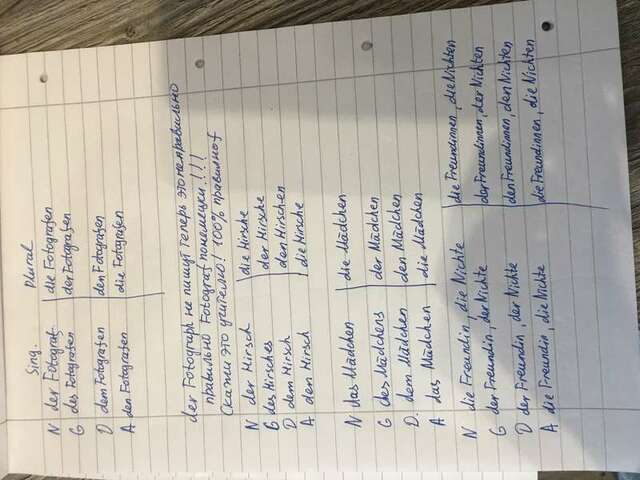 Sing. Plural
N der Fotograf. die Fotografen
G des Fotografen der Fotografen
D dem Fotografen den Fotografen
A den Fotografen die Fotografen
der Fotograph не пишут теперь это неправильно
правильно Fotograf понемецки!!!!
Скажи это учителю! 100% правильно!
N der Hirsch die Hirsche
G des Hirsches der Hirsche
D dem Hirsch den Hirschen
A den Hirsch die Hirsche
N das Mädchen die Mädchen
G des Mädchens der Mädchen
D. dem Mädchen den Mädchen
A das Mädchen die Mädchen
N die Freundin, die Nichte die Freundinnen, die Nichten
G der Freundin, der Nichte der Freundinnen, der Nichten
D der Freundin, der Nichte den Freundinnen, den Nichten
A die Freundin, die Nichte die Freundinnen, die Nichten